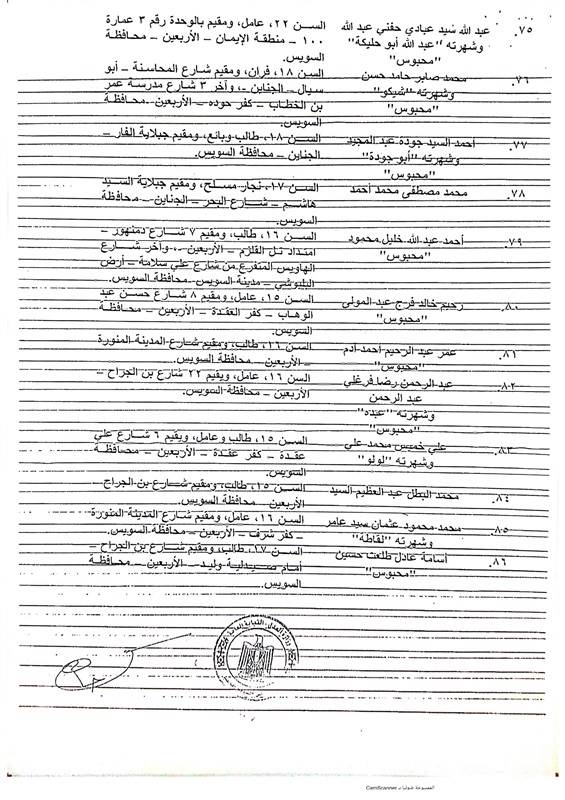 ٧٥. عبد الله سيد عبادي حفني عبد الله السن ٢٢، عامل، ومقيم بالوحدة رقم ٣ عمارة
وشهرته "عبد الله أبو حليكة" ١٠٠ – منطقة الإيمان – الأربعين – محافظة
"محبوس" السويس.
٧٦. محمد صابر حامد حسن السن ١٨، فران، ومقيم شارع المحاسنة – أبو
وشهرته "شيكو" سيال – الجناين –، وآخر ٣ شارع مدرسة عمر
"محبوس" بن الخطاب – كفر حوده – الأربعين – محافظة
السويس.
٧٧. أحمد السيد جودة عبد المجيد السن ١٨، طالب وبائع، ومقيم جبلاية الفار –
وشهرته "أبو جودة" الجناين – محافظة السويس.
"محبوس"
٧٨. محمد مصطفى محمد أحمد السن ١٧، نجار مسلح، ومقيم جبلاية السيد
هاشم – شارع البحر – الجناين – محافظة
السويس.
٧٩. أحمد عبد الله خليل محمود السن ١٦، طالب، ومقيم ٧ شارع دمنهور –
"محبوس" امتداد تل القلزم – الأربعين –، وآخر شارع
الهاويس المتفرع من شارع علي سلامة – أرض
البلبوشي – مدينة السويس – محافظة السويس.
٨٠. رحيم خالد فرج عبد المولى السن ١٥، عامل، ومقيم ٨ شارع حسن عبد
"محبوس" الوهاب – كفر العقدة – الأربعين – محافظة
السويس.
٨١. عمر عبد الرحيم أحمد آدم السن ١٦، طالب، ومقيم شارع المدينة المنورة
"محبوس" – الأربعين – محافظة السويس.
٨٢. عبد الرحمن رضا فرغلي السن ١٦، عامل، ويقيم ٢٢ شارع بن الجراح –
عبد الرحمن الأربعين – محافظة السويس.
وشهرته "عبده"
"محبوس"
٨٣. علي خميس محمد علي السن ١٥، طالب وعامل، ويقيم ٦ شارع علي
وشهرته "لولو" عقدة – كفر عقدة – الأربعين – محافظة
السويس.
٨٤. محمد البطل عبد العظيم السيد السن ١٥، طالب، ومقيم شارع بن الجراح –
الأربعين – محافظة السويس.
٨٥. محمد محمود عثمان سيد عامر السن ١٦، عامل، ومقيم شارع المدينة المنورة
وشهرته "لقاطة" – كفر شرف – الأربعين – محافظة السويس.
٨٦. أسامة عادل طلعت حسين السن ١٧، طالب، ومقيم شارع بن الجراح –
"محبوس" أمام صيدلية وليد – الأربعين – محافظة
السويس.
CamScanner الممسوحة ضوئيا بـ